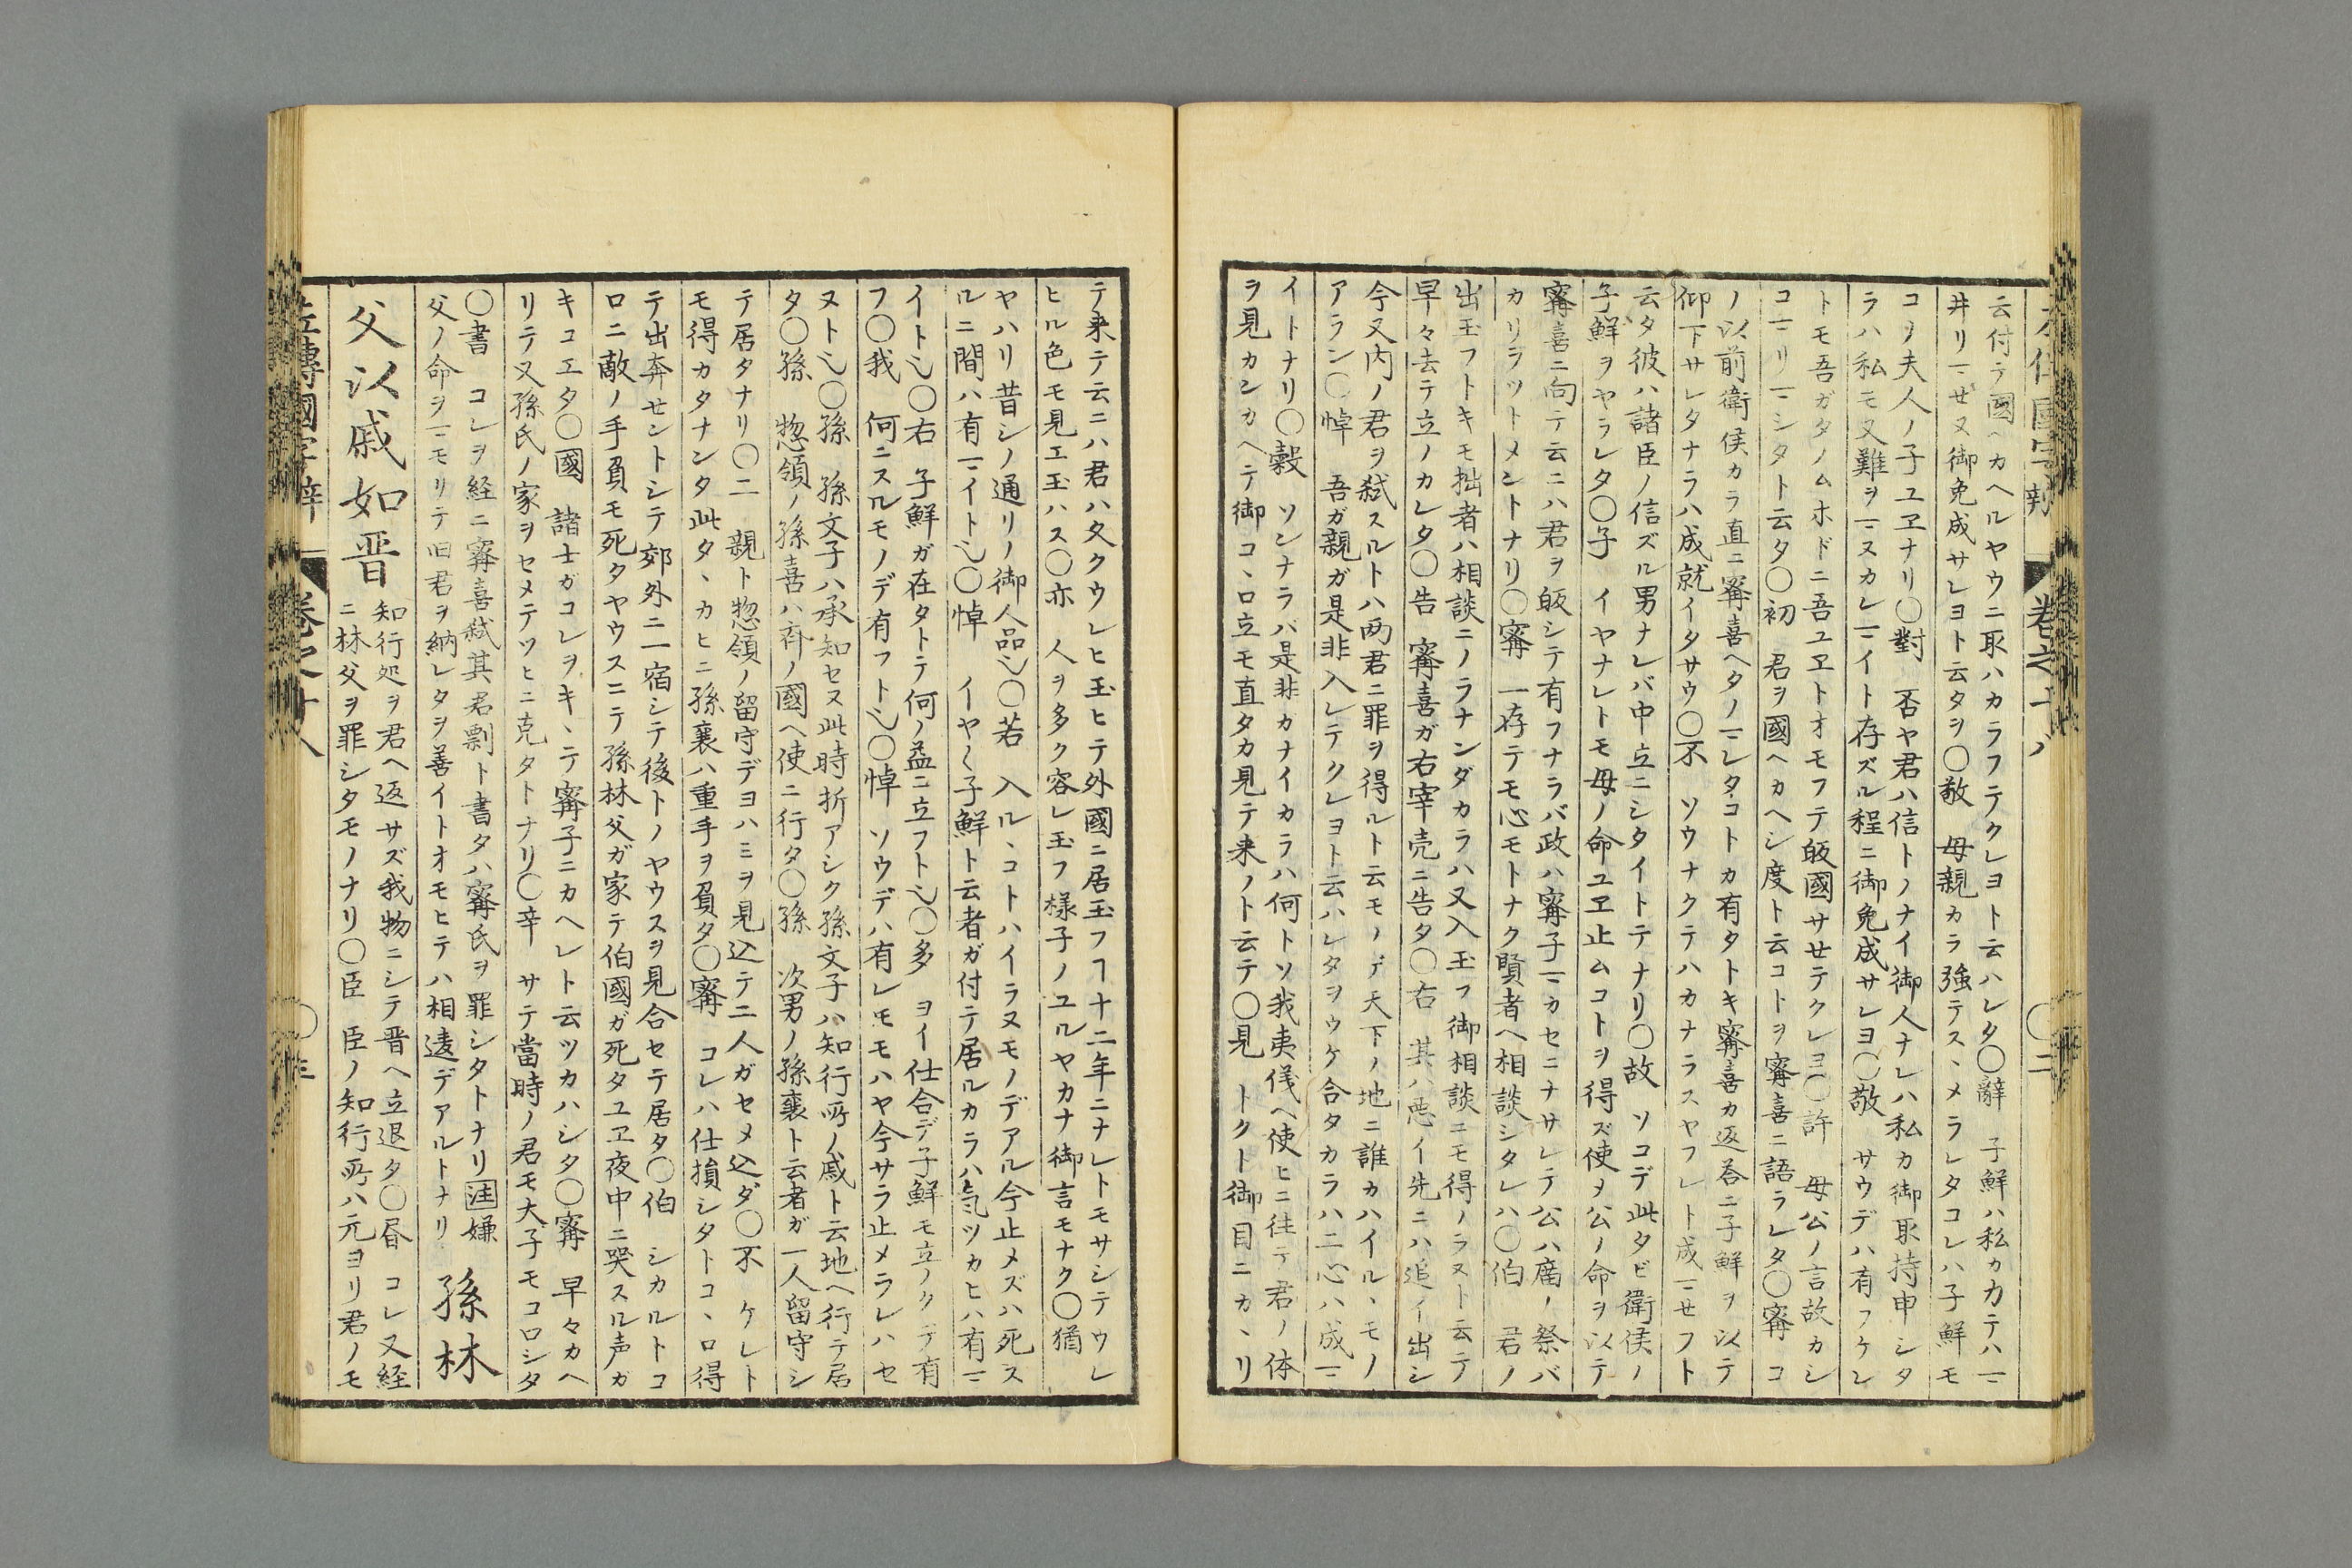 云付テ國ヘカヘルヤウニ取ハカラフテクレヨト云ハレタ〇辭　子鮮ハ私カ力テハマ
井リマせヌ御免成サレヨト云タヲ〇敬　母親カラ強テスヽメラレタコレハ子鮮モ
コヲ夫人ノ子ユヱナリ〇對　否ヤ君ハ信トノナイ御人ナレハ私カ御取持申シタ
ラハ私モ又難ヲマヌカレマイト存ズル程ニ御免成サレヨ〇敬　サウデハ有フケレ
トモ吾ガタノムホドニ吾ユヱトオモフテ皈國サせテクレヨ〇許　母公ノ言故カシ
コマリマシタト云タ〇初　君ヲ國ヘカヘシ度ト云コトヲ甯喜ニ語ラレタ〇甯　コ
ノ以前衛侯カラ直ニ甯喜ヘタノマレタコトカ有タトキ甯喜カ返荅ニ子鮮ヲ以テ
仰下サレタナラハ成就イタサウ〇不　ソウナクテハカナラスヤフレト成マせフト
云タ彼ハ諸臣ノ信ズル男ナレバ中立ニシタイトテナリ〇故　ソコデ此タビ衛侯ノ
子鮮ヲヤラレタ〇子　イヤナレトモ母ノ命ユヱ止ムコトヲ得ズ使メ公ノ命ヲ以テ
甯喜ニ向テ云ニハ君ヲ皈シテ有フナラバ政ハ甯子マカセニナサレテ公ハ廟ノ祭バ
カリヲツトメントナリ〇甯　一存テモ心モトナク賢者ヘ相談シタレハ〇伯　君ノ
出玉フトキモ拙者ハ相談ニノラナンダカラハ又入玉フ御相談ニモ得ノラヌト云テ
早々去テ立ノカレタ〇告　甯喜ガ右宰壳ニ告タ〇右　其ハ悪イ先ニハ追イ出シ
今又内ノ君ヲ弑スルトハ兩君ニ罪ヲ得ルト云モノデ天下ノ地ニ誰カハイルヽモノ
アラン〇悼　吾ガ親ガ是非入レテクレヨト云ハレタヲウケ合タカラハ二心ハ成マ
イトナリ〇穀　ソンナラバ是非カナイカラハ何トソ我夷儀ヘ使ヒニ往テ君ノ体
ヲ見カンカヘテ御コヽロ立モ直タカ見テ来ノト云テ〇見　トクト御目ニカヽリ
テ来テ云ニハ君ハ久クウレヒ玉ヒテ外國ニ居玉フヿ十二年ニナレトモサシテウレ
ヒル色モ見エ玉ハス〇亦　人ヲ多ク容レ玉フ様子ノユルヤカナ御言モナク〇猶
ヤハリ昔シノ通リノ御人品也〇若　入ルヽコトハイラヌモノデアル今止メズハ死ス
ルニ間ハ有マイト也〇悼　イヤ〱子鮮ト云者ガ付テ居ルカラハ氣ツカヒハ有マ
イト也〇右　子鮮ガ在タトテ何ノ益ニ立フト也〇多　ヨイ仕合デ子鮮モ立ノクデ有
フ〇我　何ニスルモノデ有フト也〇悼　ソウデハ有レモモハヤ今サラ止メラレハセ
ヌト也〇孫　孫文子ハ承知セヌ此時折アシク孫文子ハ知行所ノ戚ト云地ヘ行テ居
タ〇孫　惣領ノ孫喜ハ斉ノ國ヘ使ニ行タ〇孫　次男ノ孫襄ト云者ガ一人留守シ
テ居タナリ〇二　親ト惣領ノ留守デヨハミヲ見込テ二人ガセメ込ダ〇不　ケレト
モ得カタナンタ此タヽカヒニ孫襄ハ重手ヲ負タ〇甯　コレハ仕損シタトコヽロ得
テ出奔せントシテ郊外ニ一宿シテ後トノヤウスヲ見合セテ居タ〇伯　シカルトコ
ロニ敵ノ手負モ死タヤウスニテ孫林父ガ家テ伯國ガ死タユヱ夜中ニ哭スル声ガ
キコエタ〇國　諸士ガコレヲキヽテ甯子ニカヘレト云ツカハシタ〇甯　早々カヘ
リテ又孫氏ノ家ヲセメテツヒニ克タトナリ〇辛　サテ當時ノ君モ大子モコロシタ
〇書　コレヲ経ニ甯喜弑其君剽ト書タハ甯氏ヲ罪シタトナリ注嫌
父ノ命ヲマモリテ旧君ヲ納レタヲ善イトオモヒテハ相違デアルトナリ　孫林
父以戚如晋
知行処ヲ君ヘ返サズ我物ニシテ晋ヘ立退タ〇昏　コレ又経
ニ林父ヲ罪シタモノナリ〇臣　臣ノ知行所ハ元ヨリ君ノモ
左傳國字辯　卷之十八